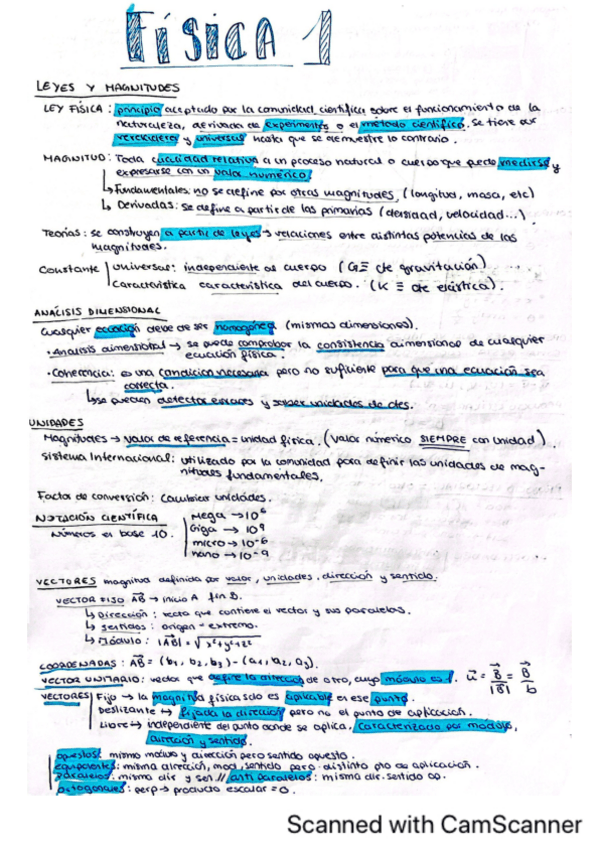 Física 1
LEYES Y MAGNITUDES
LEY FÍSICA: principio aceptado por la comunidad científica sobre el funcionamiento de la
naturaleza, derivada de experimentos o el método científico. Se tiene por
verdadera y universal hasta que se demuestre lo contrario.
MAGNITUD: Toda cualidad relativa a un proceso natural o cuerpo que puede medirse y
expresarse con un valor numérico.
↳ Fundamentales: no se define por otras magnitudes (longitud, masa, etc)
↳ Derivadas: se define a partir de las primarias (densidad, velocidad...)
Teorías: se construyen a partir de leyes → relaciones entre distintas potencias de las
magnitudes.
Constante | universal: independiente de cuerpo (G ≡ cte gravitación)
| característica característica del cuerpo. (K ≡ cte elástica).
ANÁLISIS DIMENSIONAL
Cualquier ecuación debe de ser homogénea (mismas dimensiones).
· Análisis dimensional → se puede comprobar la consistencia dimensional de cualquier
ecuación física.
· Coherencia: es una condición necesaria pero no suficiente para que una ecuación sea
correcta.
↳ se pueden detectar errores y saber unidades de ctes.
UNIDADES
Magnitudes → valor de referencia = unidad física. (valor númerico SIEMPRE con unidad)
Sistema Internacional: utilizado por la comunidad para definir las unidades de mag-
nitudes fundamentales.
Factor de conversión: cambiar unidades.
NOTACIÓN CIENTÍFICA | Mega → 10⁶
Números en base 10. | Giga → 10⁹
| micro → 10⁻⁶
| nano → 10⁻⁹
VECTORES magnitud definida por valor, unidades, dirección y sentido.
VECTOR FIJO AB → inicio A fin B.
↳ Dirección: recta que contiene el vector y sus paralelas.
↳ Sentidos: origen - extremo.
↳ Módulo: |AB| = √x²+y²+z²
COORDENADAS: AB = (b₁, b₂, b₃) - (a₁, a₂, a₃).
VECTOR UNITARIO: vector que define la dirección de otro, cuyo módulo es 1. u = B/|B| = B/b
VECTORES | Fijo → la magnitud física solo es aplicable en ese punto.
Deslizante → fijada la dirección pero no el punto de aplicación.
Libre → independiente del punto donde se aplica, caracterizado por módulo,
dirección y sentido.
opuestos: mismo modulo y dirección pero sentido opuesto.
equipolentes: misma dirección, mod, sentido pero distinto pto de aplicación.
paralelos: mismo dir y sen // anti paralelos: misma dir. sentido op.
ortogonales: perp → producto escalar = 0.
Scanned with CamScanner